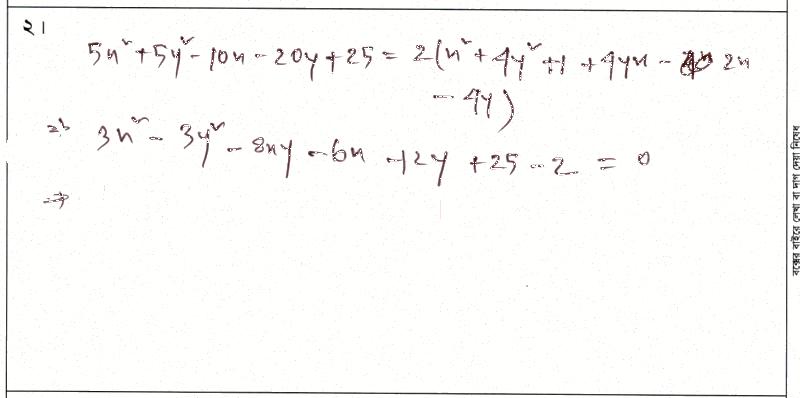 ২।
5x² + 5y² - 10x - 20y + 25 = 2(x² + 4y² + 1 + 4yx - 2x
- 4y)
⇒ 3x² - 3y² - 8xy - 6x - 12y + 25 - 2 = 0
⇒
বক্সের বাইরে লেখা বা দাগ দেয়া নিষেধ